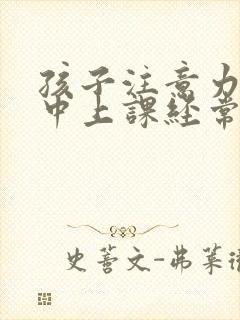 孩子注意力
中上课经常
史蒂文-弗莱